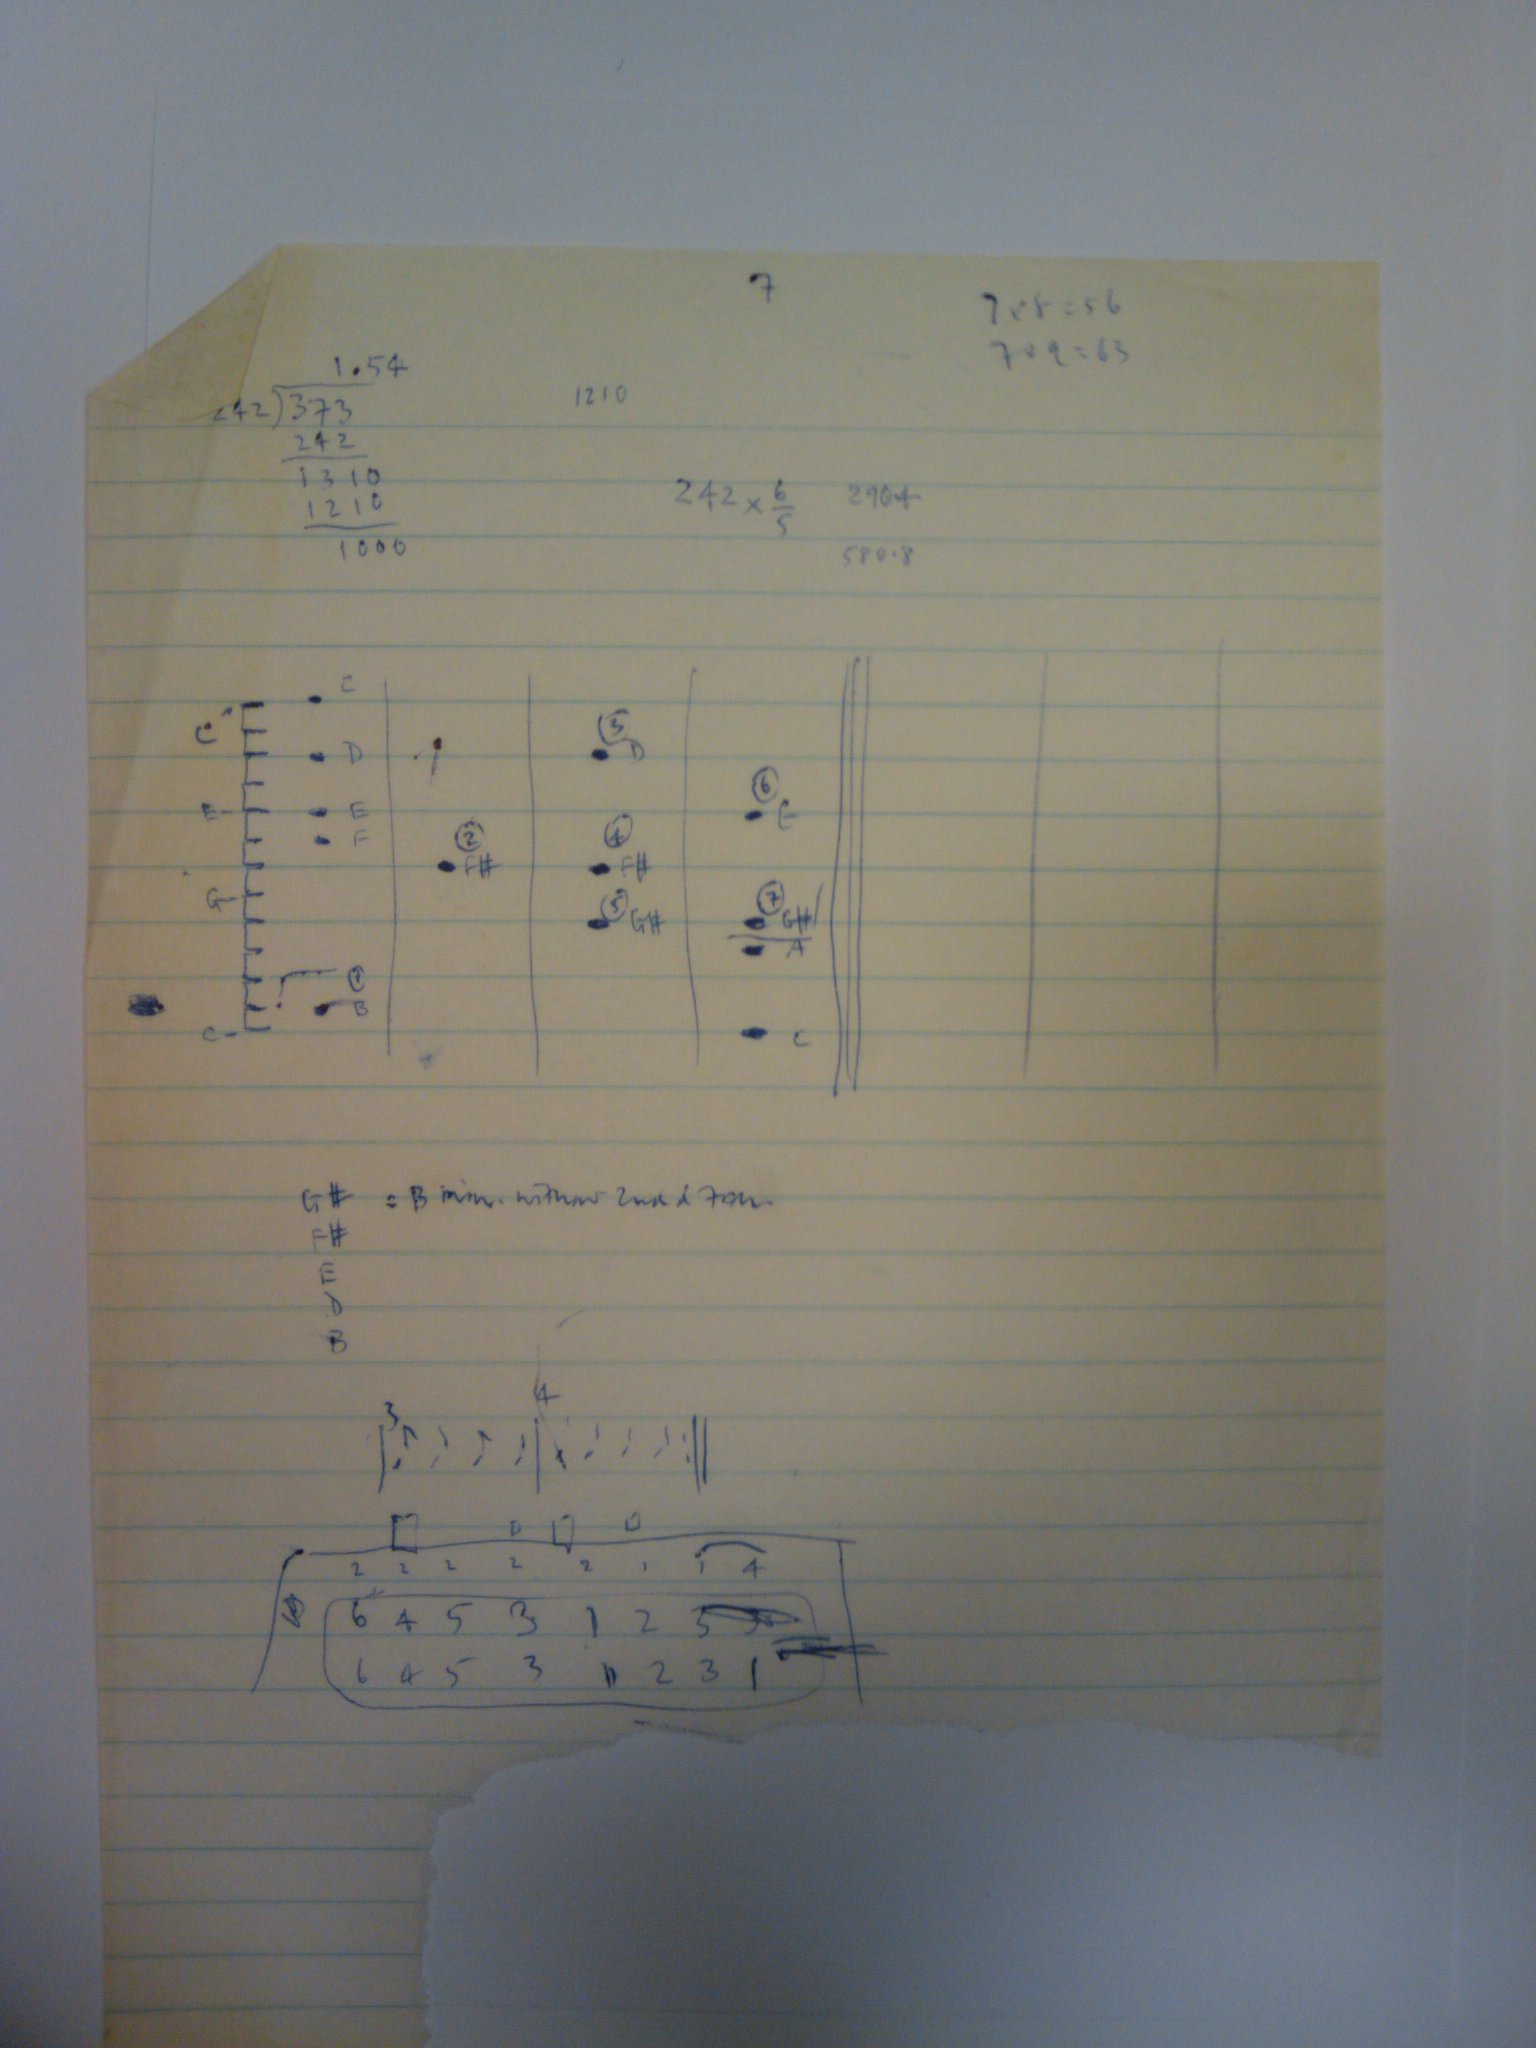 7
7x8=56
7x9=63
1.54
242)373
242
1310
1210
1000
1210
242 x 6/5 290.4
580.8
C
C D ③ D
⑥
E E E
F ② ④
F# F#
G ⑤ G# ⑦ G#
A
①
B
C C
G# = B min. without 2nd & 7th
F#
E
D
B
3 4
2 2 2 2 2 1 1 4
6 4 5 3 1 2
6 4 5 3 1 2 3 1